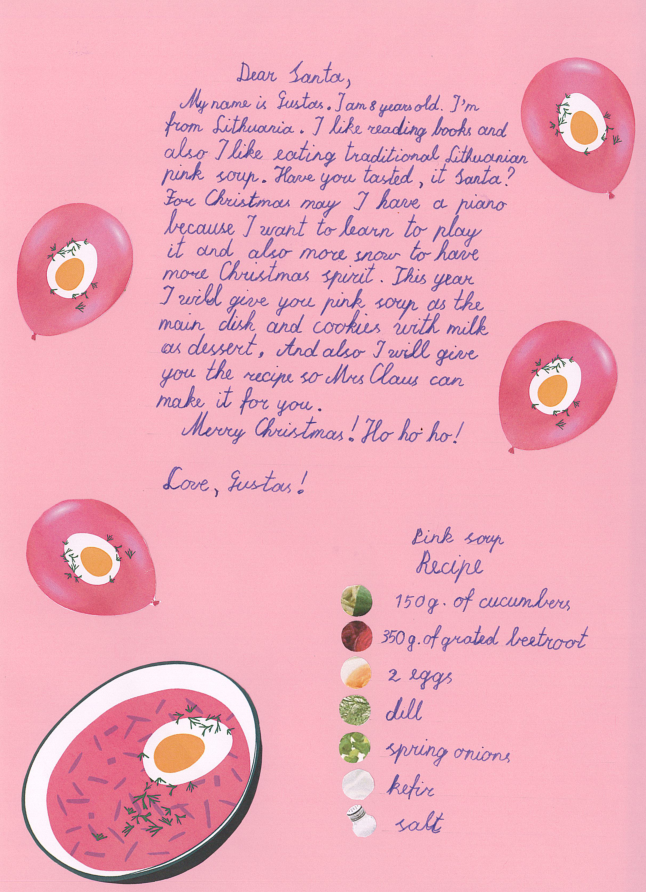 Dear Santa,
My name is Gustas. I am 8 years old. I'm
from Lithuania. I like reading books and
also I like eating traditional Lithuanian
pink soup. Have you tasted, it Santa?
For Christmas may I have a piano
because I want to learn to play
it and also more snow to have
more Christmas spirit. This year
I will give you pink soup as the
main dish and cookies with milk
as dessert, And also I will give
you the recipe so Mrs Claus can
make it for you.
Merry Christmas! Ho ho ho!
Love, Gustas!
Pink soup
Recipe
150g. of cucumbers
350g. of grated beetroot
2 eggs
dill
spring onions
kefir
salt